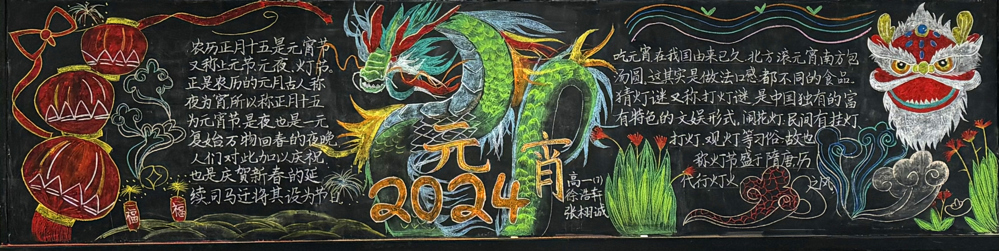 农历正月十五是元宵节
又称上元节元夜、灯节。
正是农历的元月古人称
夜为宵所以称正月十五
为元宵节是夜也是一元
复始万物回春的夜晚,
人们对此加以庆祝,
也是庆贺新春的延
续司马迁将其设为节日
福
福
元
宵
2024
高一(1)
徐浩轩
张栩诚
吃元宵在我国由来已久,北方滚元宵南方包
汤圆,这其实是做法口感都不同的食品.
猜灯谜又称打灯谜,是中国独有的富
有特色的文娱形式,闹花灯,民间有挂灯
打灯、观灯等习俗,故也
称灯节盛于隋唐历
代行灯火之风